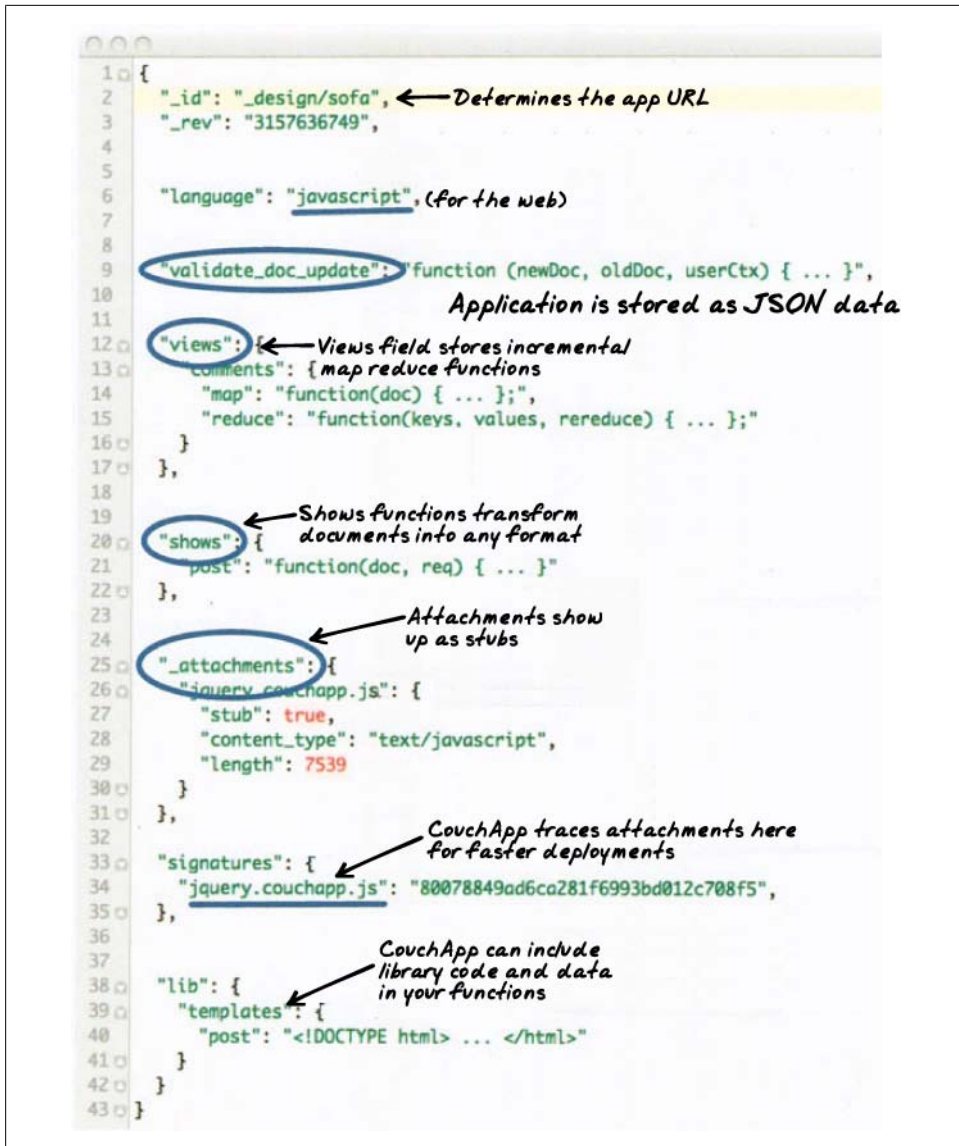 1 {
2 "_id": "_design/sofa", Determines the app URL
3 "_rev": "3157636749",
4
5
6 "language": "javascript", (for the web)
7
8
9 "validate_doc_update": "function (newDoc, oldDoc, userCtx) { ... }",
10 Application is stored as JSON data
11
12 "views": { Views field stores incremental
13 "comments": { map reduce functions
14 "map": "function(doc) { ... };",
15 "reduce": "function(keys, values, rereduce) { ... };"
16 }
17 },
18
19 Shows functions transform
20 "shows": { documents into any format
21 "post": "function(doc, req) { ... }"
22 },
23 Attachments show
24 up as stubs
25 "_attachments": {
26 "jquery.couchapp.js": {
27 "stub": true,
28 "content_type": "text/javascript",
29 "length": 7539
30 }
31 },
32 CouchApp traces attachments here
33 "signatures": { for faster deployments
34 "jquery.couchapp.js": "80078849ad6ca281f6993bd012c708f5",
35 },
36
37 CouchApp can include
38 "lib": { library code and data
39 "templates": { in your functions
40 "post": "<!DOCTYPE html> ... </html>"
41 }
42 }
43 }